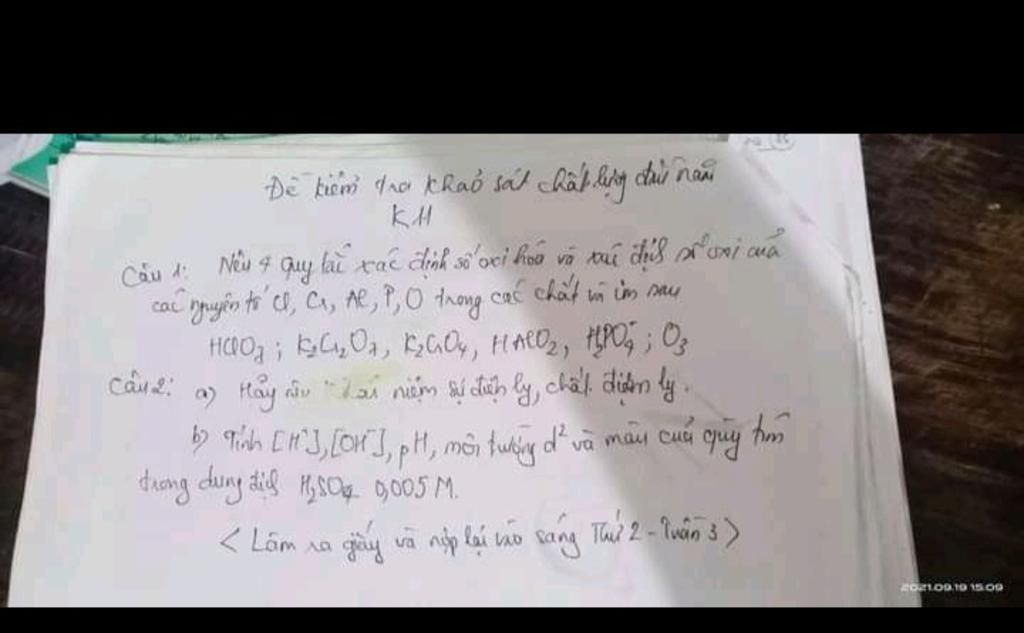 Đề kiểm tra khảo sát chất lượng đầu năm
K11
Câu 1: Nêu 4 quy tắc xác định số oxi hoá và xác định số oxi của
các nguyên tố Cl, Cr, Al, P, O trong các chất và ion sau
HClO3; K2Cr2O7, K2CrO4, HAlO2, H2PO4-; O3
Câu 2: a) Hãy nêu khái niệm sự điện ly, chất điện ly.
b) Tính [H+], [OH-], pH, môi trường d2 và màu của quỳ tím
trong dung dịch H2SO4 0,005M.
<Làm ra giấy và nộp lại vào sáng Thứ 2 - Tuần 3>
2021.09.19 15:09